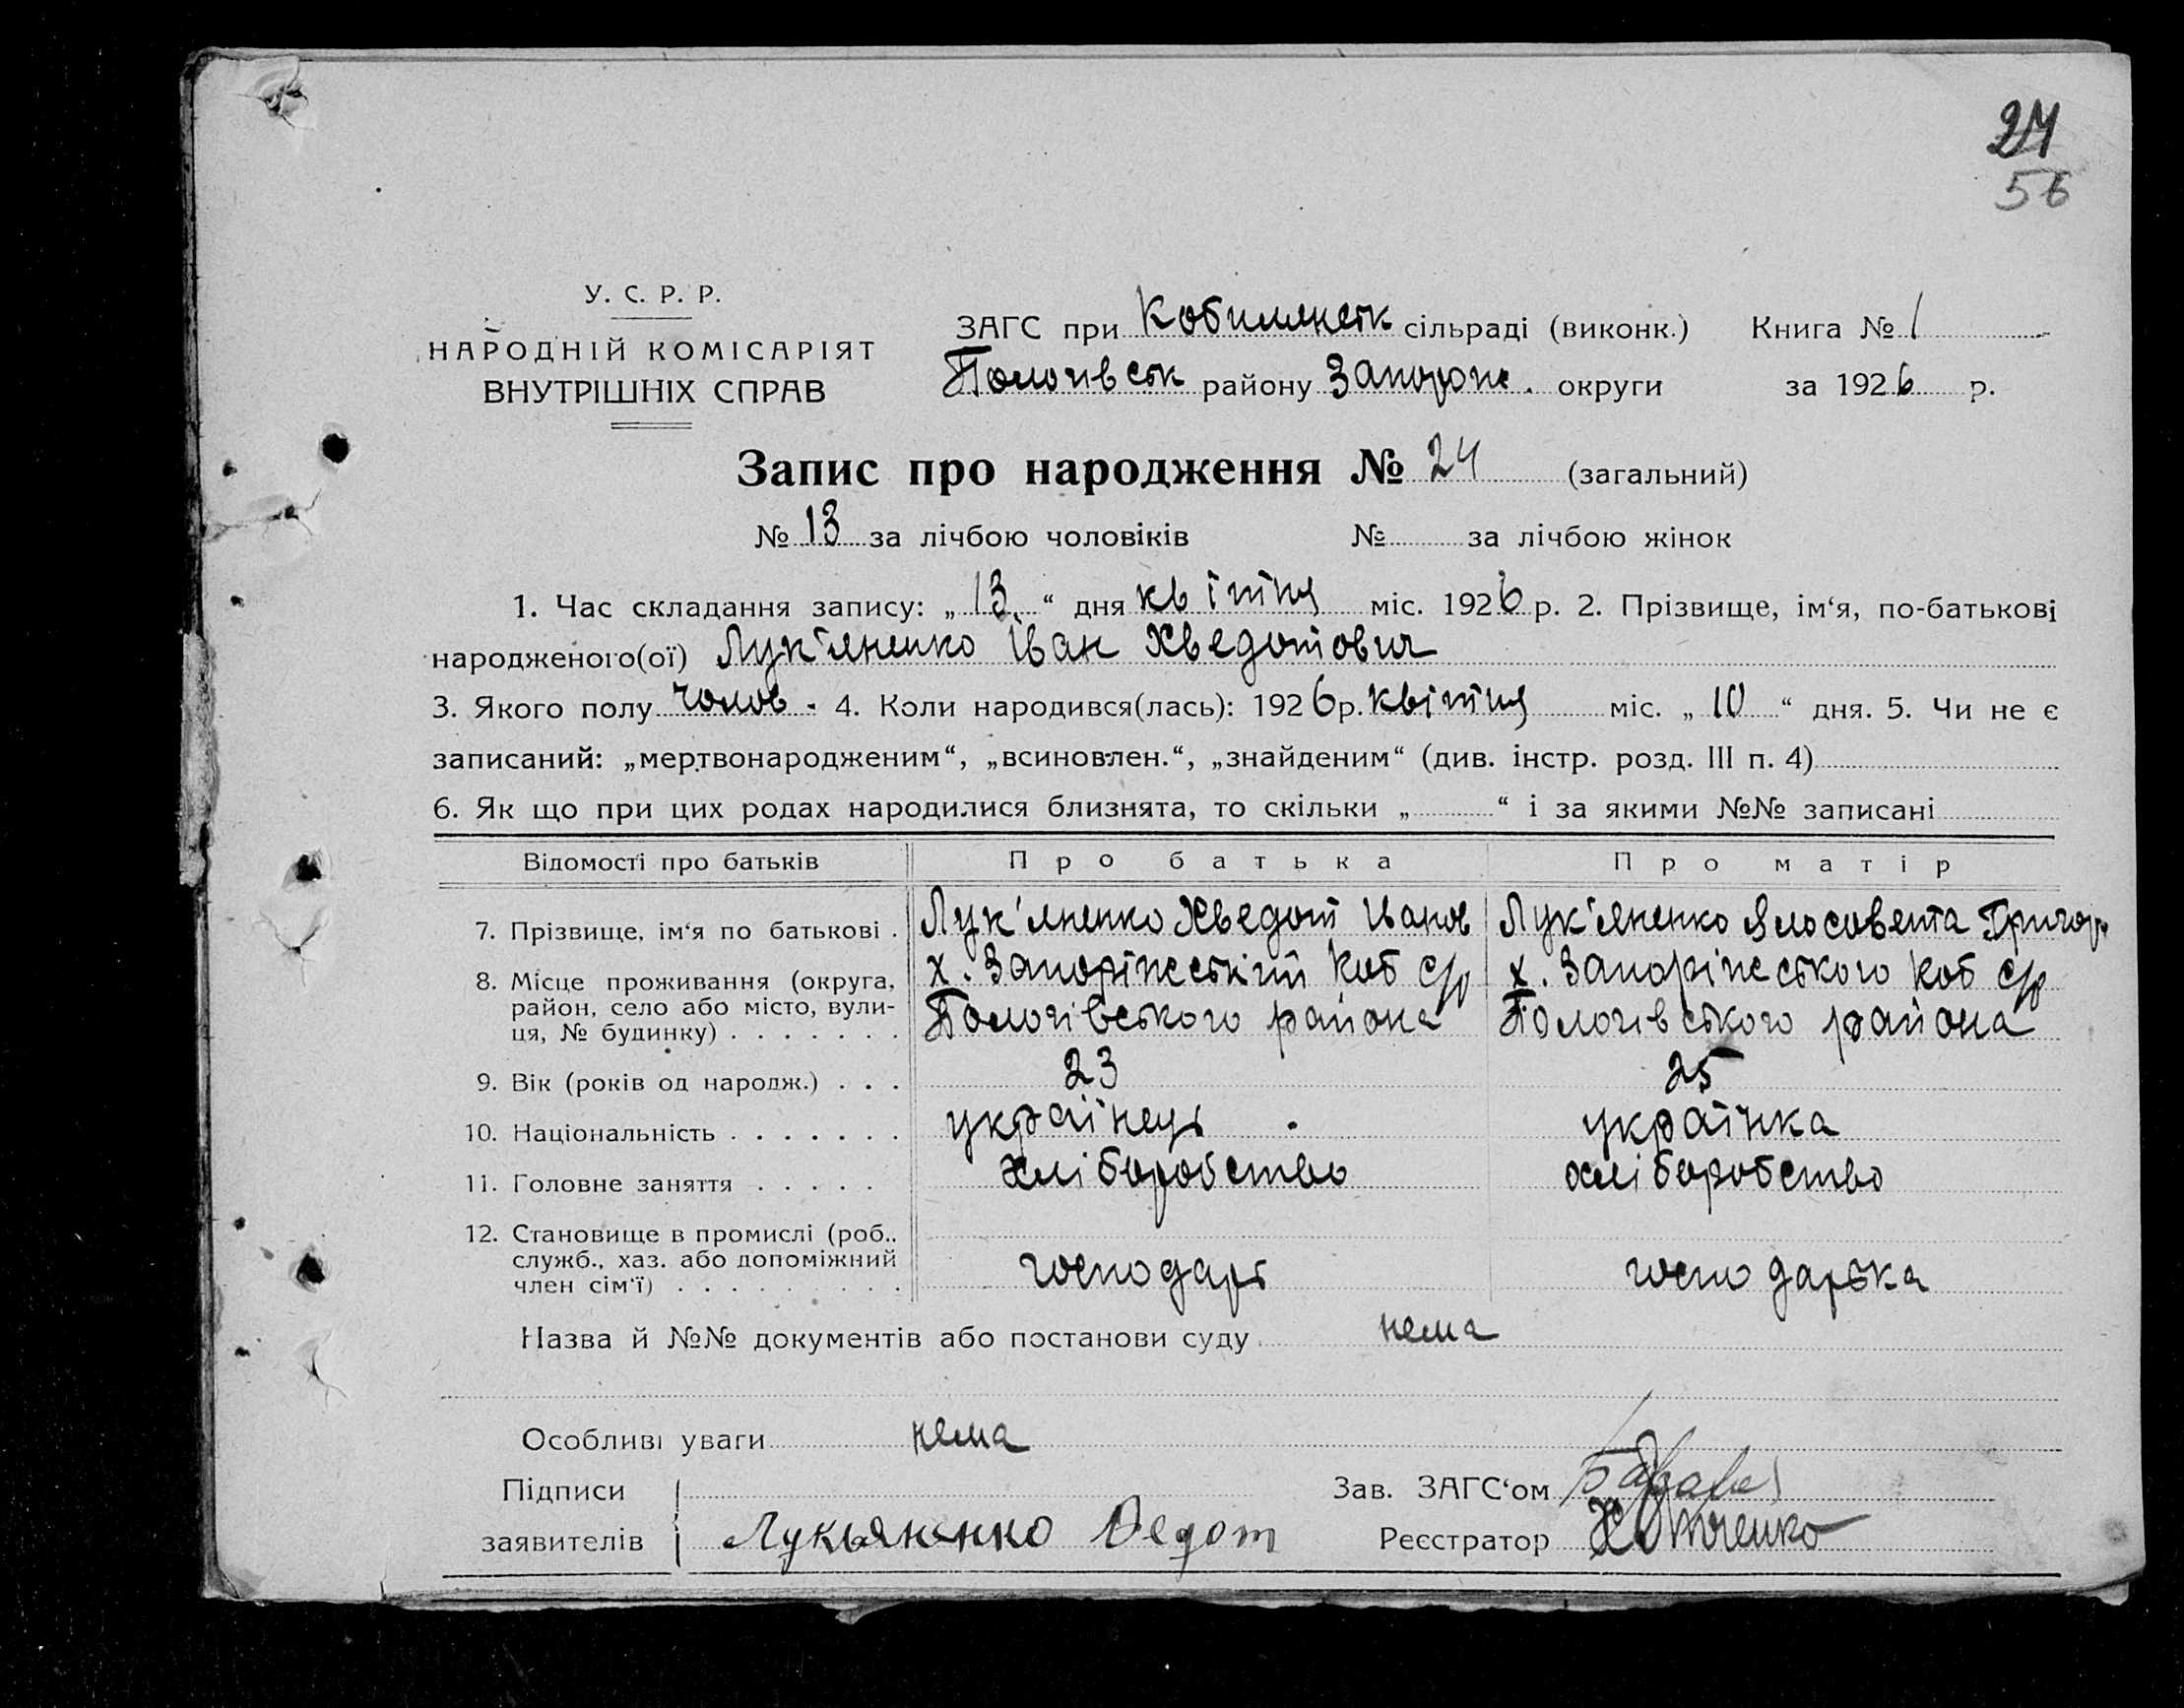 24
56
У. С. Р. Р.
НАРОДНІЙ КОМІСАРІЯТ
ВНУТРІШНІХ СПРАВ
ЗАГС при Кобилянськ сільраді (виконк.) Книга № 1
Пологівськ району Запорож. округи за 1926 р.
Запис про народження № 24 (загальний)
№ 13 за лічбою чоловіків № за лічбою жінок
1. Час складання запису: „13“ дня квітня міс. 1926 р. 2. Прізвище, ім‘я, по-батькові
народженого(ої) Лук'яненко Іван Хведотович
3. Якого полу чолов. 4. Коли народився(лась): 1926 р. квітня міс. „10“ дня. 5. Чи не є
записаний: „мертвонародженим“, „всиновлен.“, „знайденим“ (див. інстр. розд. III п. 4)
6. Як що при цих родах народилися близнята, то скільки „ “ і за якими №№ записані
Відомості про батьків Про батька Про матір
7. Прізвище, ім‘я по батькові . Лук'яненко Хведот Іванов Лук'яненко Ялосовента Григор
8. Місце проживання (округа, х. Запоріжський Коб с/р х. Запоріжського Коб с/р
район, село або місто, вули- Пологівського района Пологівського района
ця, № будинку) . . . . . . .
9. Вік (років од народж.) . . . 23 25
10. Національність . . . . . . . українець українка
11. Головне заняття . . . . . хліборобство хліборобство
12. Становище в промислі (роб..
служб., хаз. або допоміжний господарь господарька
член сім‘ї) . . . . . . . . .
Назва й №№ документів або постанови суду нема
Особливі уваги нема
Підписи Зав. ЗАГС‘ом
заявителів Лукьяненко Федот Реєстратор